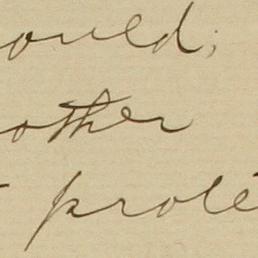 ould;
other
prote